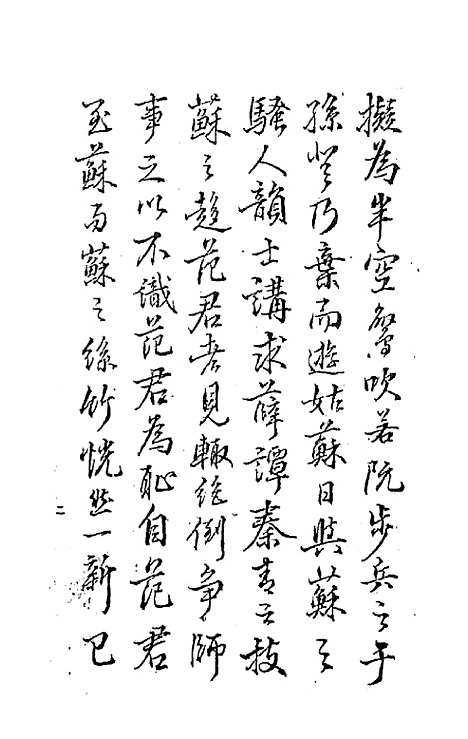 擬為半空鸞吹若阮步兵之于
孫登乃棄而遊姑蘇日與蘇之
騷人韻士講求薛譚秦青之技
蘇之趨范君者見輒絕倒爭師
事之以不識范君為恥自范君
至蘇而蘇之絲竹恍然一新已
二